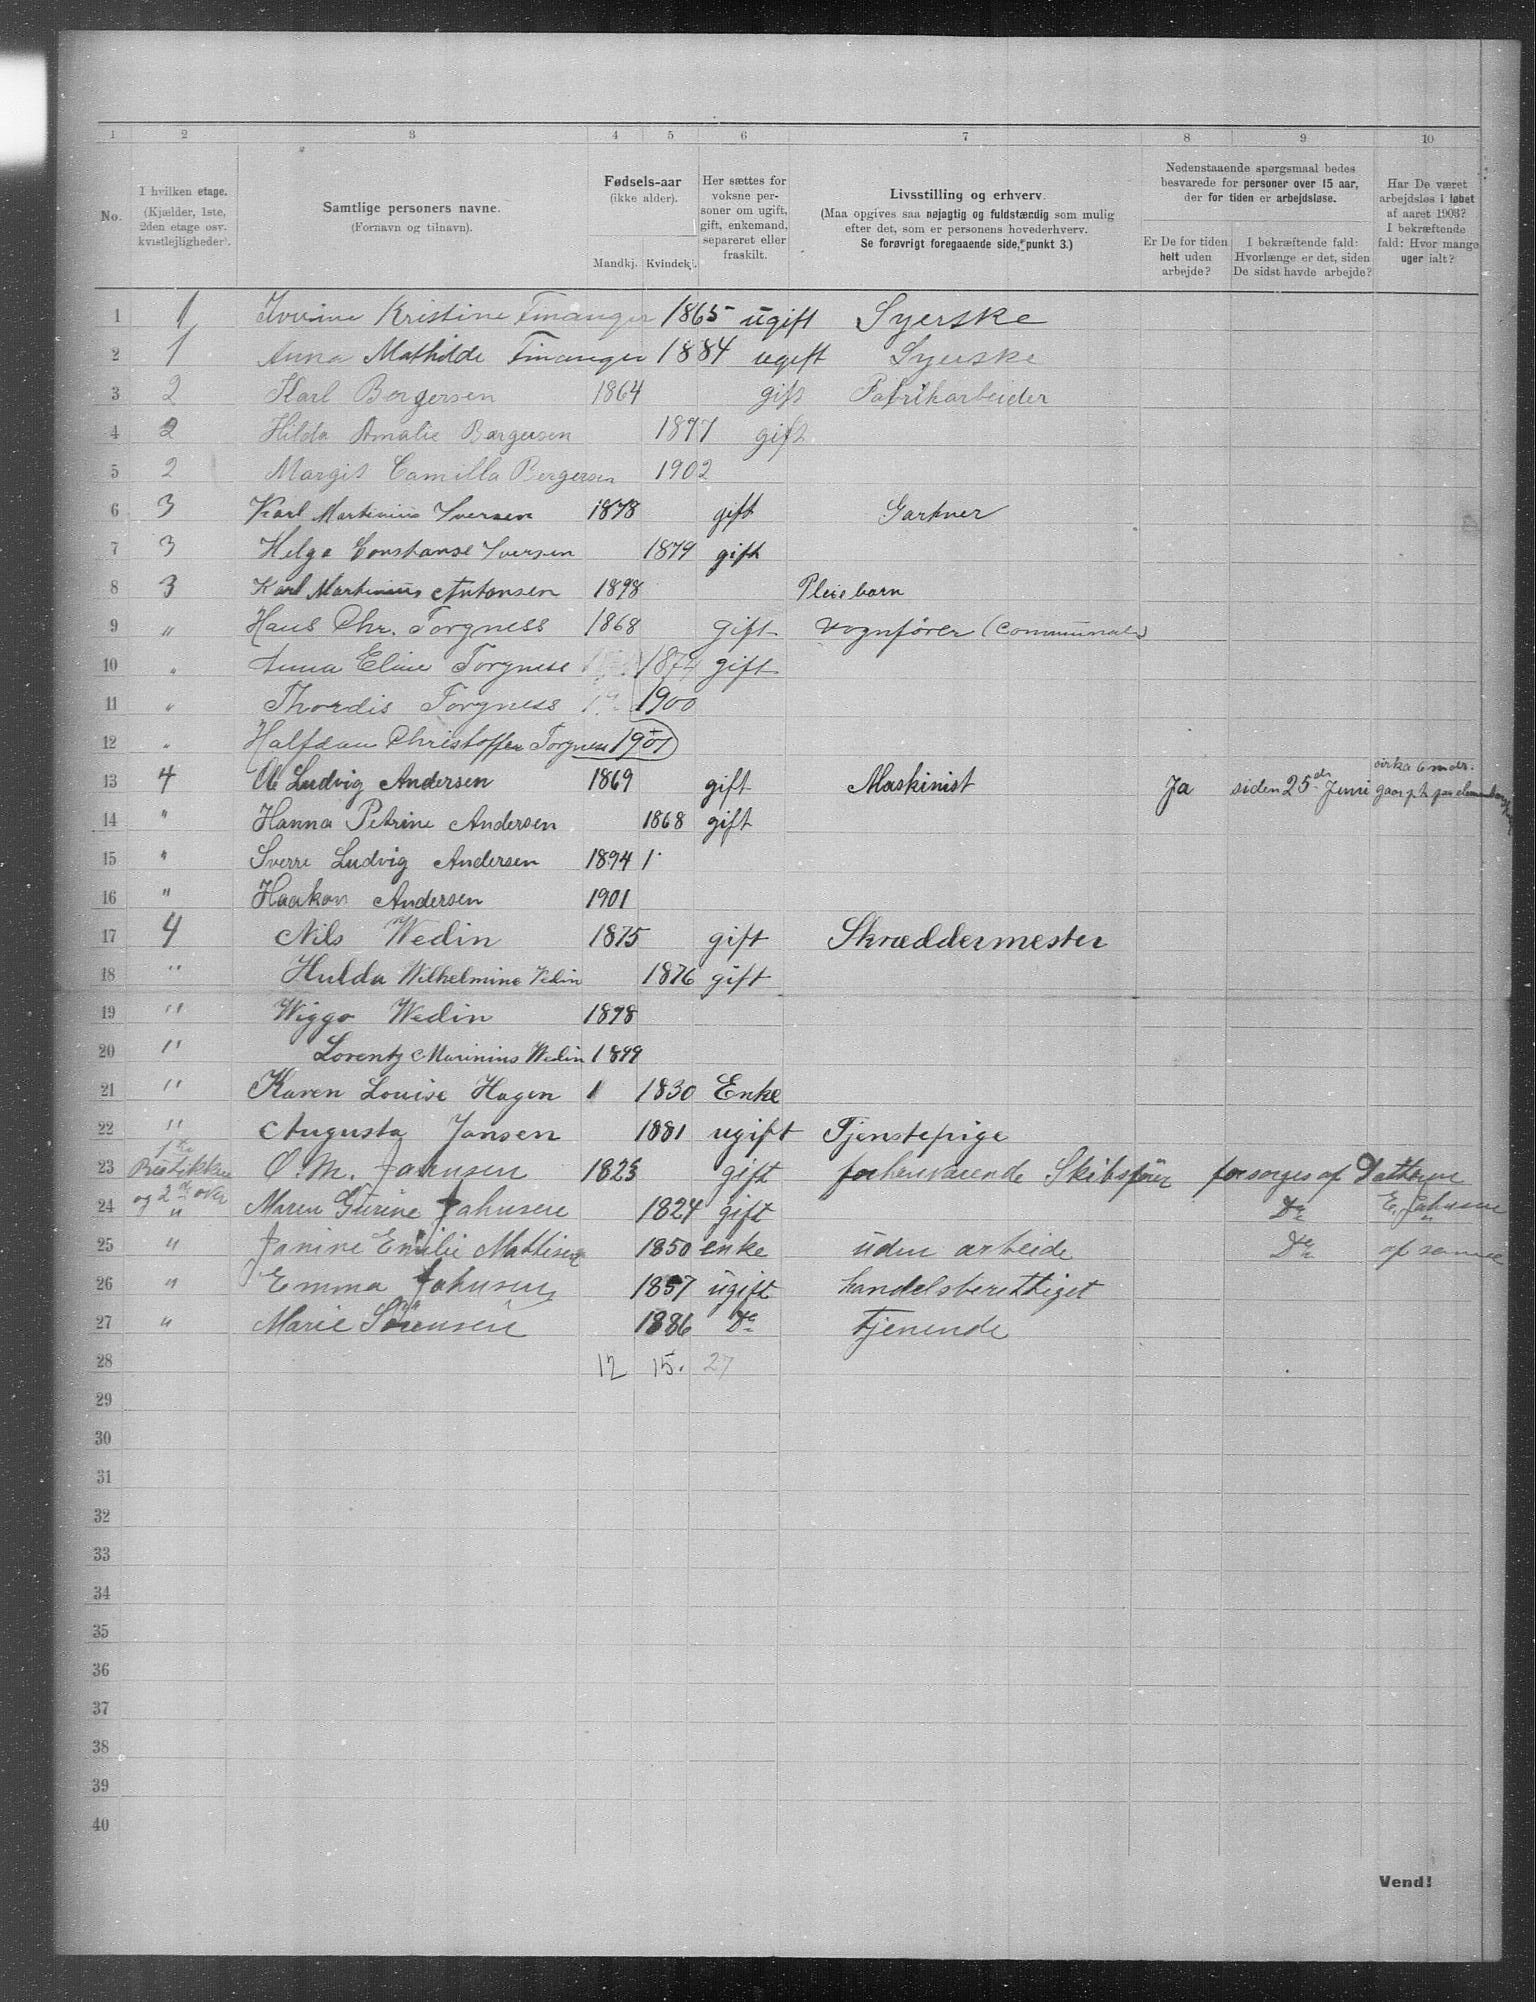 1 2 3 4 5 6 7 8 9 10
No.
I hvilken etage.
(Kjælder, 1ste,
2den etage osv.
kvistlejligheder).
Samtlige personers navne.
(Fornavn og tilnavn).
Fødsels-aar
(ikke alder).
Mandkj. Kvindekj.
Her sættes for
voksne per-
soner om ugift,
gift, enkemand,
separeret eller
fraskilt.
Livsstilling og erhverv.
(Maa opgives saa nøjagtig og fuldstændig som mulig
efter det, som er personens hovederhverv.
Se forøvrigt foregaaende side, punkt 3.)
Nedenstaaende spørgsmaal bedes
besvarede for personer over 15 aar,
der for tiden er arbejdsløse.
Er De for tiden
helt uden
arbejde?
I bekræftende fald:
Hvorlænge er det, siden
De sidst havde arbejde?
Har De været
arbejdsløs i løbet
af aaret 1903?
I bekræftende
fald: Hvor mange
uger ialt?
1 1 Kristine Finanger 1865 ugift Syerske
2 1 Anna Mathilde Finanger 1884 ugift Syerske
3 2 Karl Bergersen 1864 gift Fabrikarbeider
4 2 Hilda Amalie Bergersen 1877 gift
5 2 Margit Camilla Bergersen 1902
6 3 Karl Martinius Iversen 1878 gift Gartner
7 3 Helga Constanse Iversen 1879 gift
8 3 Karl Martinius Antonsen 1898 Pleiebarn
9 " Hans Chr. Torgness 1868 gift vognfører (Communal)
10 " Anna Eline Torgness 1874 gift
11 " Thordis Torgness 1900
12 " Halfdan Christoffer Torgness 1901
13 4 Ole Ludvig Andersen 1869 gift Maskinist Ja siden 25de Juni cirka 6 mdr.
14 " Hanna Petrine Andersen 1868 gift
15 " Sverre Ludvig Andersen 1894 1
16 " Haakon Andersen 1901
17 4 Nils Wedin 1875 gift Skræddermester
18 " Hulda Wilhelmine Vedin 1876 gift
19 " Wiggo Wedin 1898
20 " Lorentz Marinius Wedin 1899
21 " Karen Louise Hagen 1 1830 Enke
22 " Augusta Jansen 1881 ugift Tjenstepige
23 1ste O. M. Jahnsen 1823 gift forhenværende Skibsfører forsorges af Datteren
24 og 2den over " Maren Gurine Jahnsen 1824 gift Do E. Jahnsen
25 " Janine Emilie Mattisen 1850 enke uden arbeide Do af samme
26 " Emma Jahnsen 1857 ugift handelsberettiget
27 " Marie Sørensen 1886 Do Tjenende
28 12 15. 27
29
30
31
32
33
34
35
36
37
38
39
40
Vend!